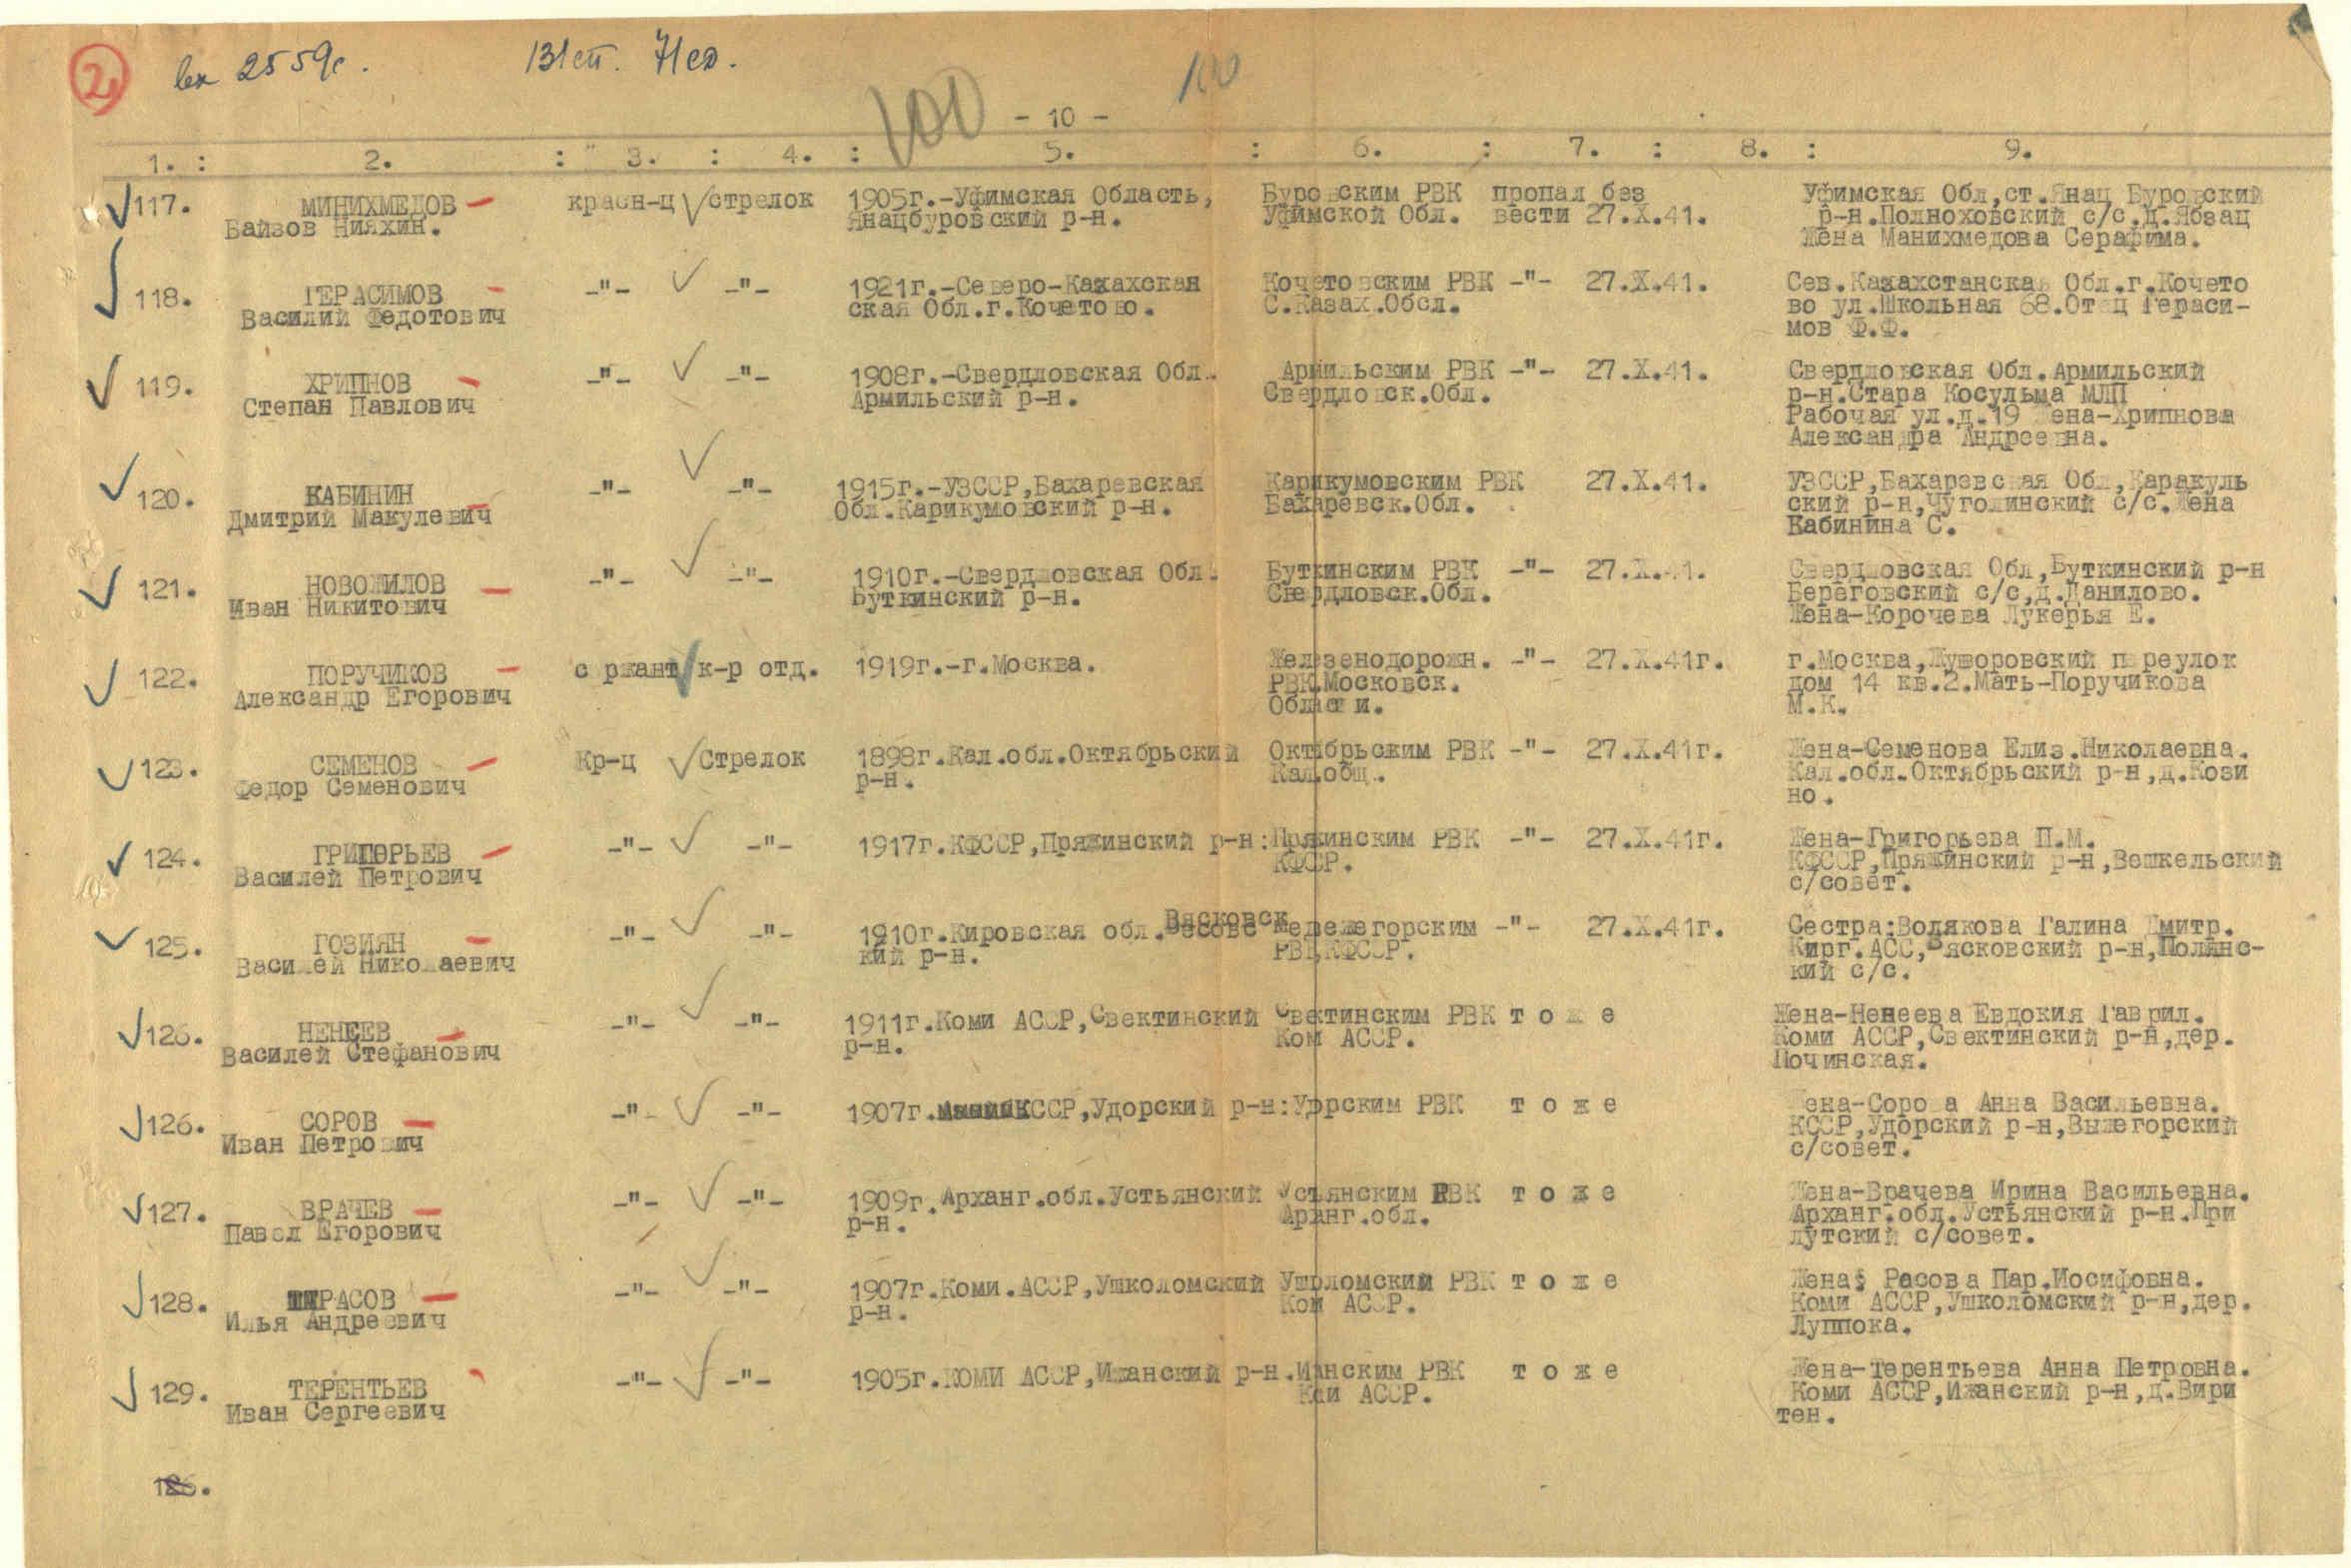 2
вх 2559с.
131сп. 71сд.
100
100
- 10 -
1. : 2. : 3. : 4. : 5. : 6. : 7. : 8. : 9.
117. МИНИХМЕДОВ красн-ц стрелок 1905г.-Уфимская Область, Буровским РВК пропал без Уфимская Обл,ст.Янац Буровский
Байзов Нияхин. Янацбуровский р-н. Уфимской Обл. вести 27.X.41. р-н.Полноховский с/с,д.Ябзац
Жена Манихмедова Серафима.
118. ГЕРАСИМОВ -"- -"- 1921г.-Северо-Казахская Кочетовским РВК -"- 27.X.41. Сев.Казахстанская Обл.г.Кочето
Василий Федотович ская Обл.г.Кочетово. С.Казах.Обсл. во ул.Школьная 68.Отец Гераси-
мов Ф.Ф.
119. ХРИПНОВ -"- -"- 1908г.-Свердловская Обл. Армильским РВК -"- 27.X.41. Свердловская Обл.Армильский
Степан Павлович Армильский р-н. Свердловск.Обл. р-н.Стара Косульма МЛП
Рабочая ул.д.19 Жена-Хрипнова
Александра Андреевна.
120. КАБИНИН -"- -"- 1915г.-УЗССР,Бахаревская Карикумовским РВК 27.X.41. УЗССР,Бахаревская Обл,Каракуль
Дмитрий Макулевич Обл.Карикумовский р-н. Бахаревск.Обл. ский р-н,Чуголинский с/с.Жена
Кабинина С.
121. НОВОЖИЛОВ -"- -"- 1910г.-Свердловская Обл. Буткинским РВК -"- 27.X.41. Свердловская Обл,Буткинский р-н
Иван Никитович Буткинский р-н. Свердловск.Обл. Береговский с/с,д.Данилово.
Жена-Корочева Лукерья Е.
122. ПОРУЧИКОВ сержант к-р отд. 1919г.-г.Москва. Железенодорожн. -"- 27.X.41г. г.Москва, переулок
Александр Егорович РВК Московск. дом 14 кв.2.Мать-Поручикова
Области. М.К.
123. СЕМЕНОВ Кр-ц Стрелок 1898г.Кал.обл.Октябрьский Октябрьским РВК -"- 27.X.41г. Жена-Семенова Елиз.Николаевна.
Федор Семенович р-н. Кал.общ. Кал.обл.Октябрьский р-н,д.Кози
но.
124. ГРИГОРЬЕВ -"- -"- 1917г.КФССР,Пряжинский р-н: Пряжинским РВК -"- 27.X.41г. Жена-Григорьева П.М.
Василей Петрович КФСР. КФССР,Пряжинский р-н,Вешкельский
с/совет.
125. ГОЗИЯН -"- -"- 1910г.Кировская обл.Вясковск Медвежегорским -"- 27.X.41г. Сестра:Волякова Галина Дмитр.
Василей Николаевич кий р-н. РВК,КФССР. Кирг.АСС,Вясковский р-н,Полянс-
кий с/с.
126. НЕНЕЕВ -"- -"- 1911г.Коми АССР,Свектинский Свектинским РВК т о ж е Жена-Ненеева Евдокия Гаврил.
Василей Стефанович р-н. Коми АССР. Коми АССР,Свектинский р-н,дер.
Починская.
126. СОРОВ -"- -"- 1907г. КССР,Удорский р-н: Удорским РВК т о ж е Жена-Сорова Анна Васильевна.
Иван Петрович КССР,Удорский р-н,Вылегорский
с/совет.
127. ВРАЧЕВ -"- -"- 1909г.Арханг.обл.Устьянский Устьянским РВК т о ж е Жена-Врачева Ирина Васильевна.
Павел Егорович р-н. Арханг.обл. Арханг.обл.Устьянский р-н.При
лутский с/совет.
128. РАСОВ -"- -"- 1907г.Коми.АССР,Ушколомский Ушоломский РВК т о ж е Жена: Расова Пар.Иосифовна.
Илья Андреевич р-н. Коми АССР. Коми АССР,Ушколомский р-н,дер.
Луппока.
129. ТЕРЕНТЬЕВ -"- -"- 1905г.КОМИ АССР,Ижанский р-н. Ижанским РВК т о ж е Жена-Терентьева Анна Петровна.
Иван Сергеевич Коми АССР. Коми АССР,Ижанский р-н,д.Вири
тен.
126.